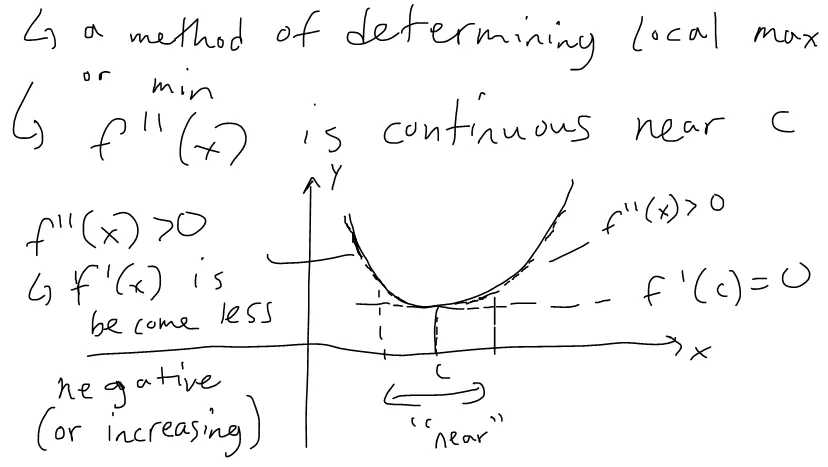 ↳ a method of determining local max
or min
↳ f''(x) is continuous near c
y
f''(x) > 0
f''(x) > 0
↳ f'(x) is
become less
negative
(or increasing)
f'(c) = 0
x
c
"near"